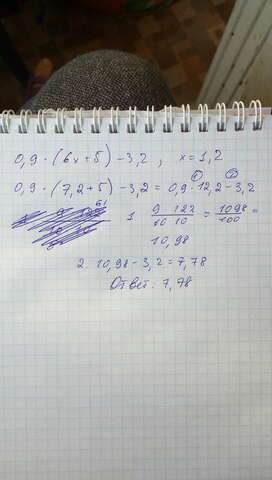 0,9 · (6x+5) − 3,2 , x=1,2
0,9 · (7,2+5) − 3,2 = 0,9 · 12,2 − 3,2
1 9 · 122 / 10 10 = 1098 / 100 =
10,98
2. 10,98 − 3,2 = 7,78
Ответ: 7,78